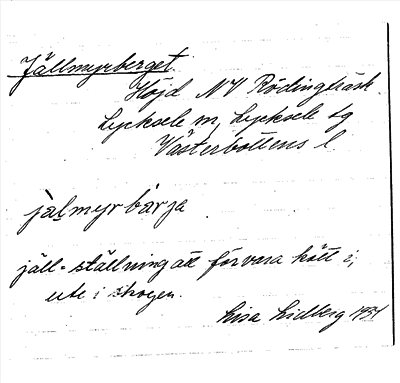 Jällmyrberget.
Höjd NV Rödingträsk.
Lycksele m, Lycksele sg
Västerbottens l.
jalmyrbärja
jäll = ställning att förvara kött i,
ute i skogen.
Lisa Lidberg 1931